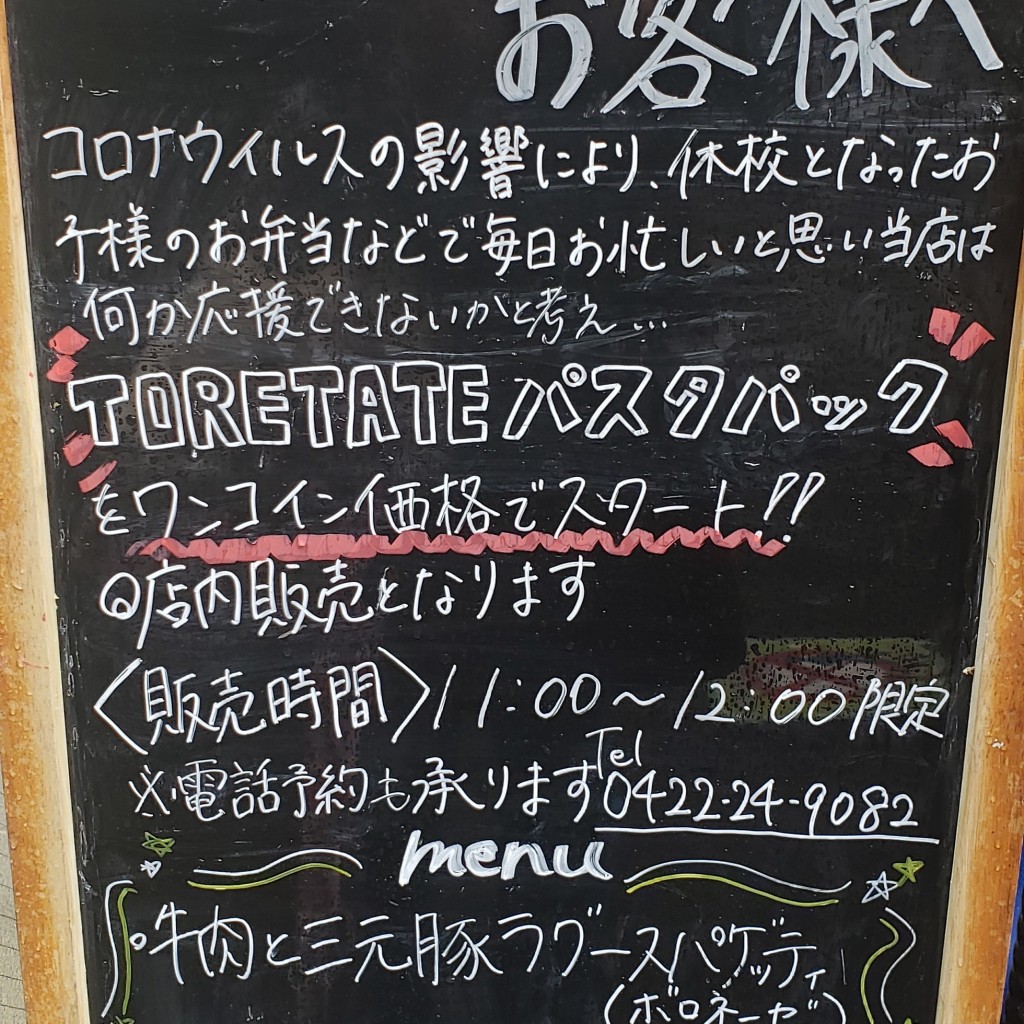 お客様へ
コロナウィルスの影響により、休校となったお
子様のお弁当などで毎日お忙しいと思い当店は
何か応援できないかと考え...
TORETATEパスタパック
をワンコイン価格でスタート!!
◎店内販売となります
〈販売時間〉11:00〜12:00限定
※電話予約も承ります Tel 0422-24-9082
menu
°牛肉と三元豚ラグースパゲッティ
(ボロネーゼ)